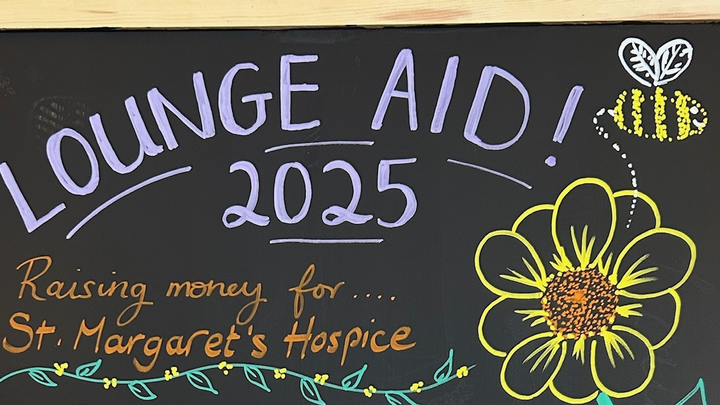 LOUNGE AID!
2025
Raising money for....
St. Margaret's Hospice